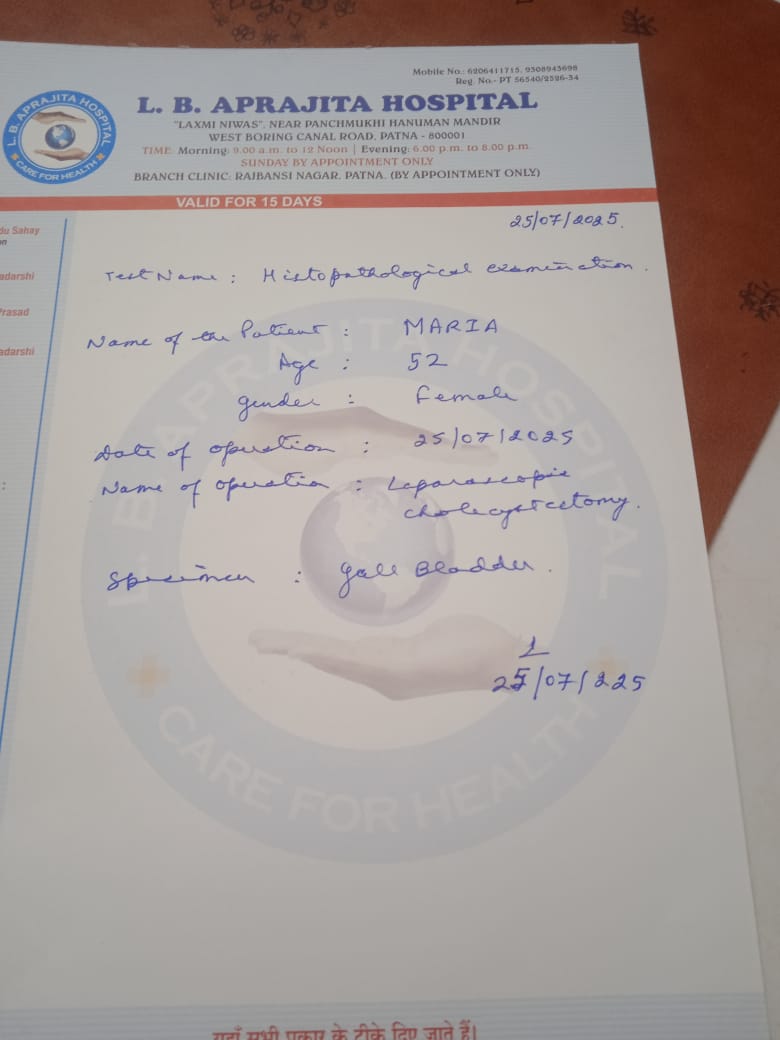 Mobile No.: 6206411715, 9308943698
Reg. No.- PT 56540/2526-34
L. B. APRAJITA HOSPITAL
CARE FOR HEALTH
L. B. APRAJITA HOSPITAL
"LAXMI NIWAS", NEAR PANCHMUKHI HANUMAN MANDIR
WEST BORING CANAL ROAD, PATNA - 800001
TIME: Morning: 9.00 a.m. to 12 Noon | Evening: 6.00 p.m. to 8.00 p.m.
SUNDAY BY APPOINTMENT ONLY
BRANCH CLINIC: RAJBANSI NAGAR, PATNA. (BY APPOINTMENT ONLY)
VALID FOR 15 DAYS
du Sahay
on
adarshi
Prasad
adarshi
:
25/07/2025.
Test Name : Histopathological examination.
Name of the Patient : MARIA
Age : 52
Gender : Female
Date of operation : 25/07/2025
Name of operation : Leparascopic
cholecystectomy.
Specimen : Gall Bladder.
25/07/225
L. B. APRAJITA HOSPITAL
CARE FOR HEALTH
यहाँ सभी प्रकार के टीके दिए जाते हैं।